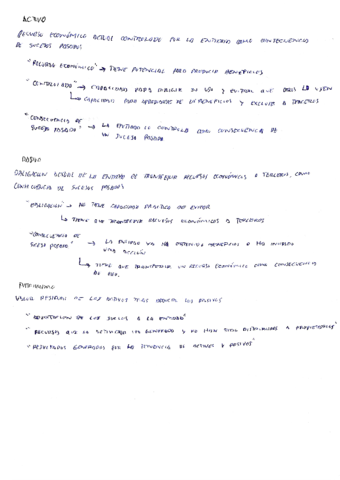 ACTIVO
RECURSO ECONÓMICO ACTUAL CONTROLADO POR LA ENTIDAD COMO CONSECUENCIA
DE SUCESOS PASADOS
"RECURSO ECONÓMICO" → TIENE POTENCIAL PARA PRODUCIR BENEFICIOS
"CONTROLADO" → CAPACIDAD PARA DIRIGIR SU USO Y EVITAR QUE OTROS LO USEN
↳ CAPACIDAD PARA APROPIARSE DE BENEFICIOS Y EXCLUIR A TERCEROS
"CONSECUENCIA DE
SUCESO PASADO" → LA ENTIDAD LO CONTROLA COMO CONSECUENCIA DE
UN SUCESO PASADO
PASIVO
OBLIGACIÓN ACTUAL DE LA ENTIDAD DE TRANSFERIR RECURSOS ECONÓMICOS A TERCEROS, COMO
CONSECUENCIA DE SUCESOS PASADOS
"OBLIGACIÓN" → NO TIENE CAPACIDAD PRÁCTICA DE EVITAR
↳ TIENE QUE TRANSFERIR RECURSOS ECONÓMICOS A TERCEROS
"CONSECUENCIA DE
SUCESO PASADO" → LA ENTIDAD YA HA OBTENIDO BENEFICIOS O HA
UNA ACCIÓN
↳ TIENE QUE TRANSFERIR UN RECURSO ECONÓMICO COMO CONSECUENCIA
DE
PATRIMONIO
VALOR RESIDUAL DE LOS ACTIVOS TRAS DEDUCIR LOS PASIVOS
"APORTACIÓN DE LOS SOCIOS A LA ENTIDAD"
"RECURSOS QUE LA ACTIVIDAD HA GENERADO Y NO HAN SIDO DISTRIBUIDOS A PROPIETARIOS"
"RESULTADOS GENERADOS POR LA TENENCIA DE ACTIVOS Y PASIVOS"